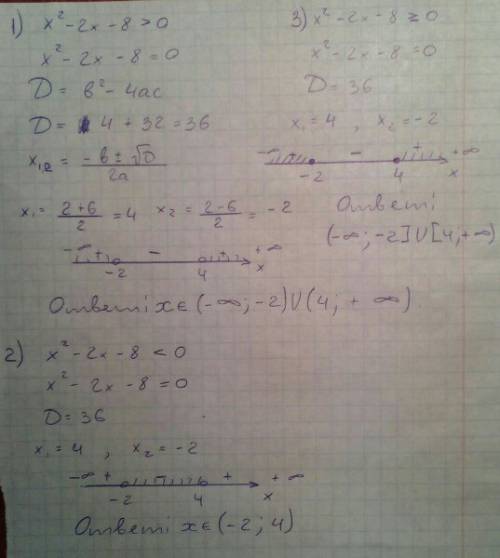 1) x² - 2x - 8 > 0
x² - 2x - 8 = 0
D = b² - 4ac
D = 4 + 32 = 36
x₁,₂ = (-b ± √D) / 2a
x₁ = (2+6)/2 = 4 x₂ = (2-6)/2 = -2
-∞ + - + +∞
-2 4 x
Ответ: x ∈ (-∞; -2) ∪ (4; +∞)
2) x² - 2x - 8 < 0
x² - 2x - 8 = 0
D = 36
x₁ = 4 , x₂ = -2
-∞ + - + +∞
-2 4 x
Ответ: x ∈ (-2; 4)
3) x² - 2x - 8 ≥ 0
x² - 2x - 8 = 0
D = 36
x₁ = 4 , x₂ = -2
-∞ + - + +∞
-2 4 x
Ответ:
(-∞; -2] ∪ [4; +∞)